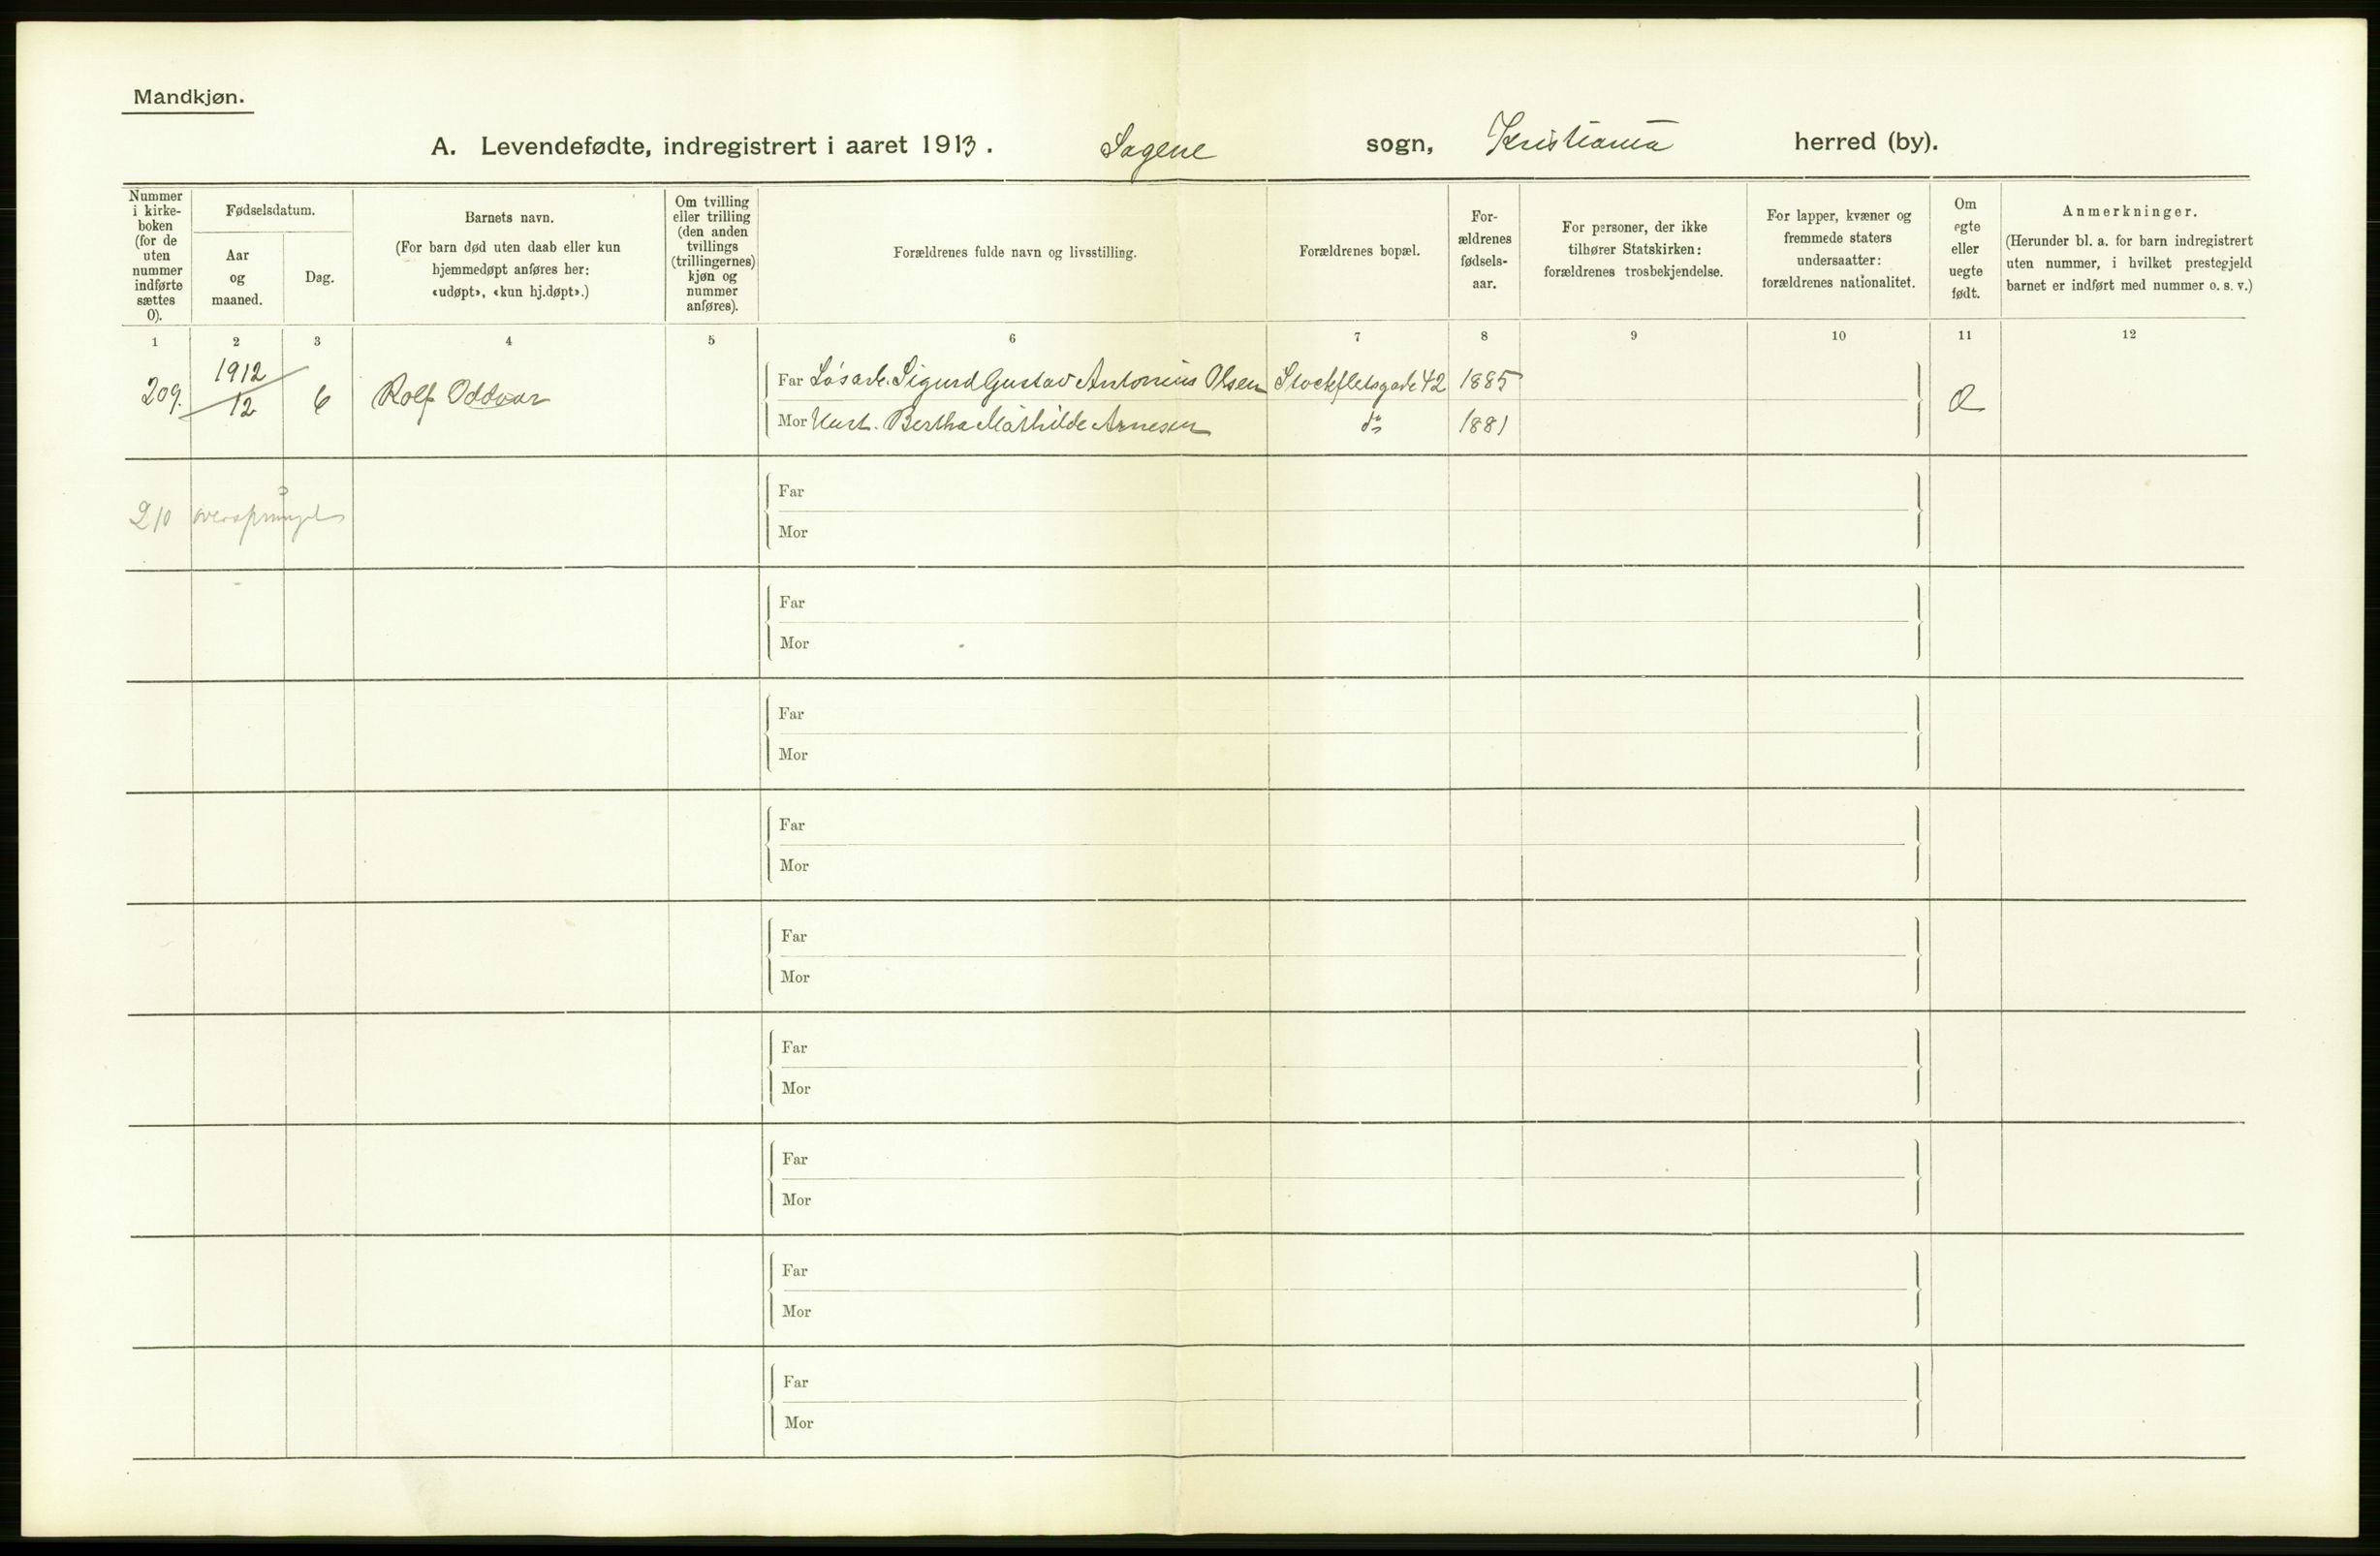 Mandkjøn.
A. Levendefødte, indregistrert i aaret 1913. Sagene sogn, Kristiania herred (by).
Nummer i kirke-boken (for de uten nummer indførte sættes 0).
Fødselsdatum.
Aar og maaned.
Dag.
Barnets navn.
(For barn død uten daab eller kun hjemmedøpt anføres her: «udøpt», «kun hj.døpt».)
Om tvilling eller trilling (den anden tvillings (trillingernes) kjøn og nummer anføres).
Forældrenes fulde navn og livsstilling.
Forældrenes bopæl.
For-ældrenes fødsels-aar.
For personer, der ikke tilhører Statskirken: forældrenes trosbekjendelse.
For lapper, kvæner og fremmede staters undersaatter: forældrenes nationalitet.
Om egte eller uegte født.
Anmerkninger.
(Herunder bl. a. for barn indregistrert uten nummer, i hvilket prestegjeld barnet er indført med nummer o. s. v.)
1 2 3 4 5 6 7 8 9 10 11 12
209. 1912 12 6 Rolf Oddvar
Far Løsarb. Sigurd Gustav Antonius Olsen Stockfletsgade 42 1885
Mor Hust. Bertha Mathilde Arnesen do 1881
210 oversprunget
Far
Mor
Far
Mor
Far
Mor
Far
Mor
Far
Mor
Far
Mor
Far
Mor
Far
Mor
Far
Mor